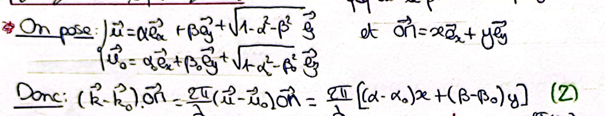 * On pose: { u⃗ = αe⃗x + βe⃗y + √(1-α²-β²) e⃗z et OM⃗ = xe⃗x + ye⃗y
u⃗₀ = α₀e⃗x + β₀e⃗y + √(1-α₀²-β₀²) e⃗z
Donc: (k⃗-k⃗₀).OM⃗ = 2π/λ (u⃗-u⃗₀)OM⃗ = 2π/λ [(α-α₀)x + (β-β₀)y] (2)